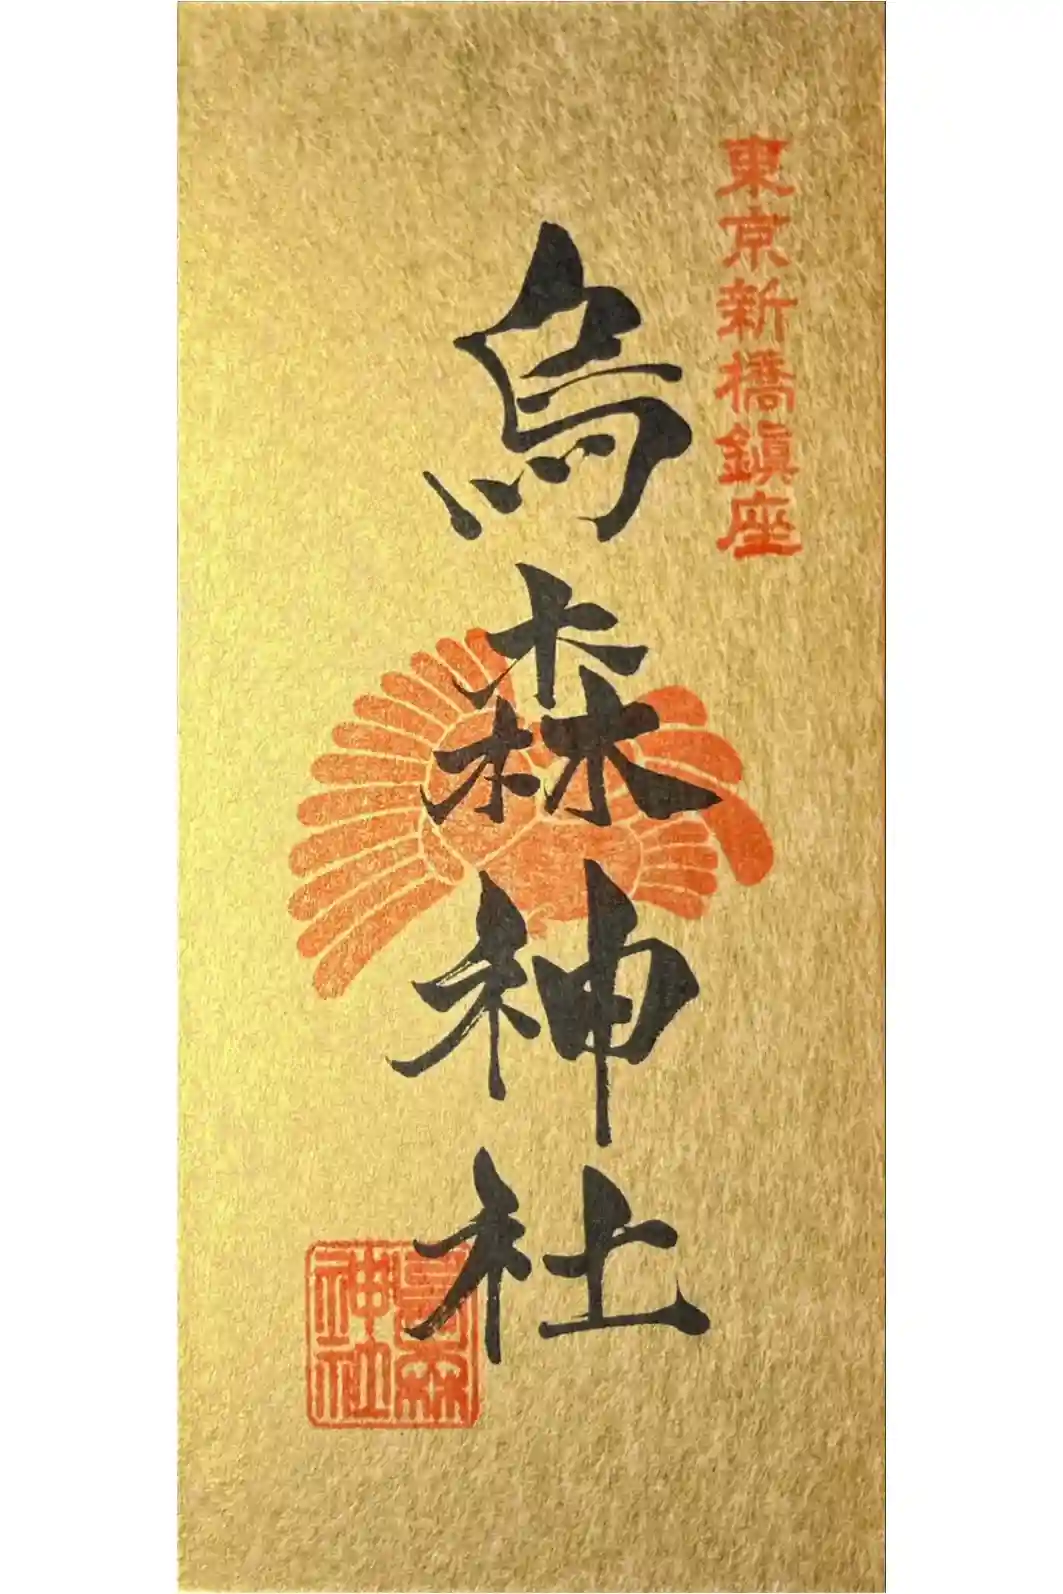 東京新橋鎮座
烏森神社
烏森
神社